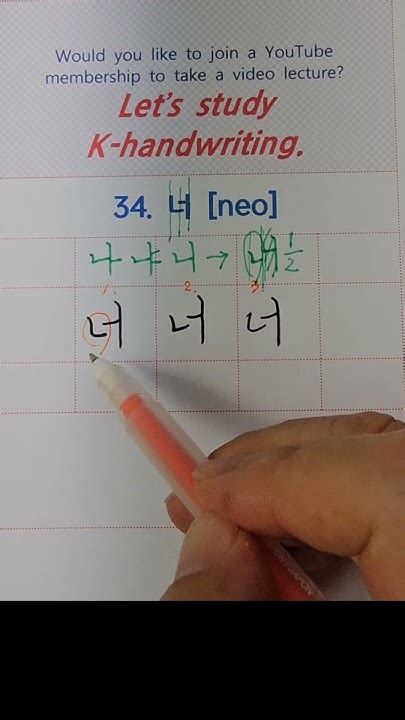 Would you like to join a YouTube
membership to take a video lecture?
Let's study
K-handwriting.
34. 너 [neo]
나 냐 너 → 녀 1/2
1. 2. 3.
너 너 너